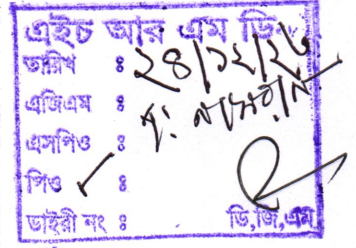 এইচ আর এম ডি
তারিখ :
এজিএম :
এসপিও :
পিও ✓ :
ডাইরী নং : ডি,জি,এম